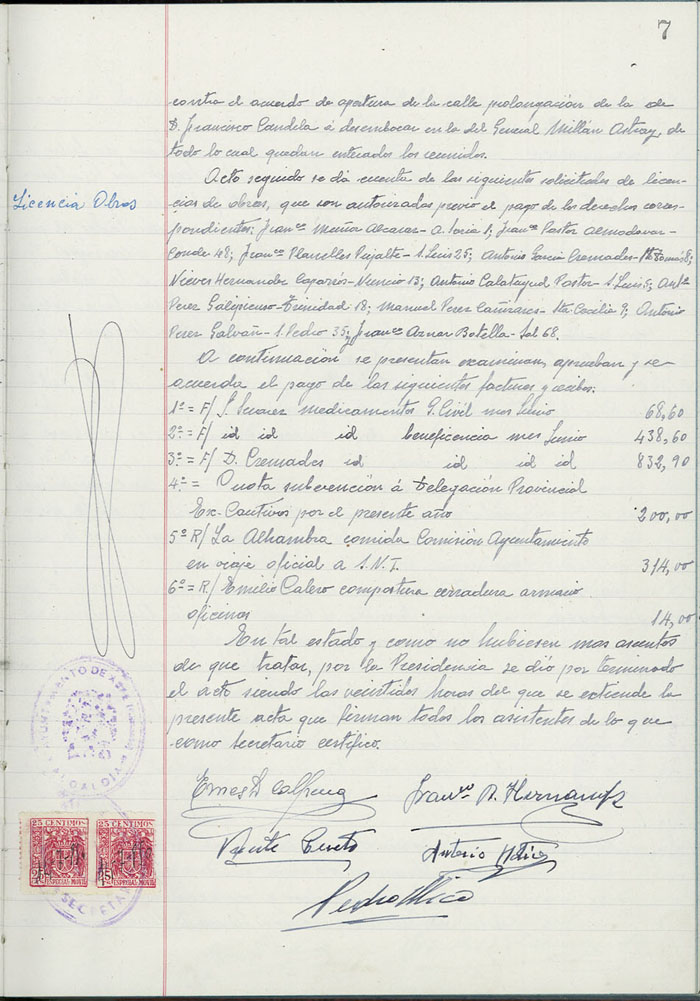 7
contra el acuerdo de apertura de la calle prolongación de la de
D. Francisco Candela á desembocar en la del General Millán Astray, de
todo lo cual quedan enterados los reunidos.
Licencia Obras
Acto seguido se dá cuenta de las siguientes solicitudes de licen-
cias de obras, que son autorizadas previo el pago de los derechos corres-
pondientes: Franco Muñoz Alcaraz - A. Soria 1; Franco Pastor Almodovar -
Conde 48; Franco Planelles Pujalte - S. Luis 25; Antonio García Cremades - Sto Tomás 8;
Nieves Hernandez Caparrós - Nuncio 13; Antonio Calatayud Pastor - S. Luis 5; Antº
Perez Galipienso - Trinidad 18; Manuel Perez Cañizares - Sta Cecilia 9; Antonio
Perez Galvañ - S. Pedro 35 y Franco Aznar Botella - Sol 68.
A continuación se presentan examinan, aprueban y se
acuerda el pago de las siguientes facturas y recibos:
1º = F/ J. Suarez medicamentos G. Civil mes Junio 68,60
2º = F/ id id id beneficencia mes Junio 438,60
3º = F/ D. Cremades id id id id 832,90
4º = Cuota subvención á Delegación Provincial
Ex-Cautivos por el presente año 200,00
5º R/ La Alhambra comida Comisión Ayuntamiento
en viaje oficial a I.N.I. 314,00
6º = R/ Emilio Calero compostura cerradura armario
oficinas 14,00
En tal estado y como no hubiesen mas asuntos
de que tratar, por la Presidencia se dio por terminado
el acto siendo las veintidos horas del que se extiende la
presente acta que firman todos los asistentes de lo que
como Secretario certifico.
AYUNTAMIENTO DE
ALCALDIA
Franco
Vicente
Antonio
Pedro
25 CENTIMOS 25 CENTIMOS
ESPECIAL MOVIL ESPECIAL MOVIL
SECRETARIA